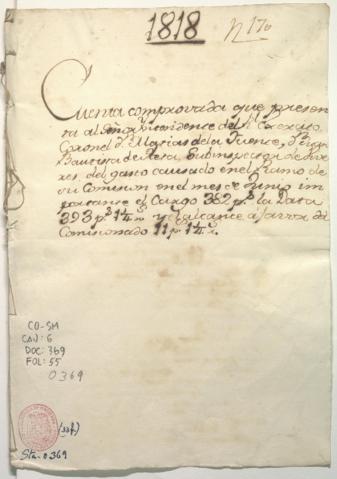 1818
Nº 170
Cuenta comprovada que presen
ta al Señor Yntendente del Exército
Coronel D. Matias de la Fuente, D. Juan
Bautista de
res, del gasto causado en el Ramo de
su Comision en el mes de Junio im
portante el Cargo 382 p.s la Data
393 p.s 1¼ r. y el alcance a favor del
Comisionado 11 p.s 1¼ r.
CO-SM
CAJ: 6
DOC: 369
FOL: 55
0369
(33f.)
Sta. 0369